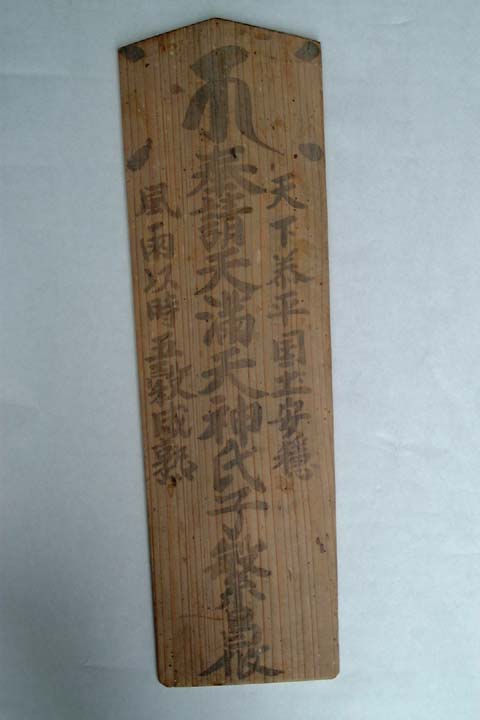 天下泰平国土安穏
奉請天満天神氏子繁昌
風雨以時五穀成熟